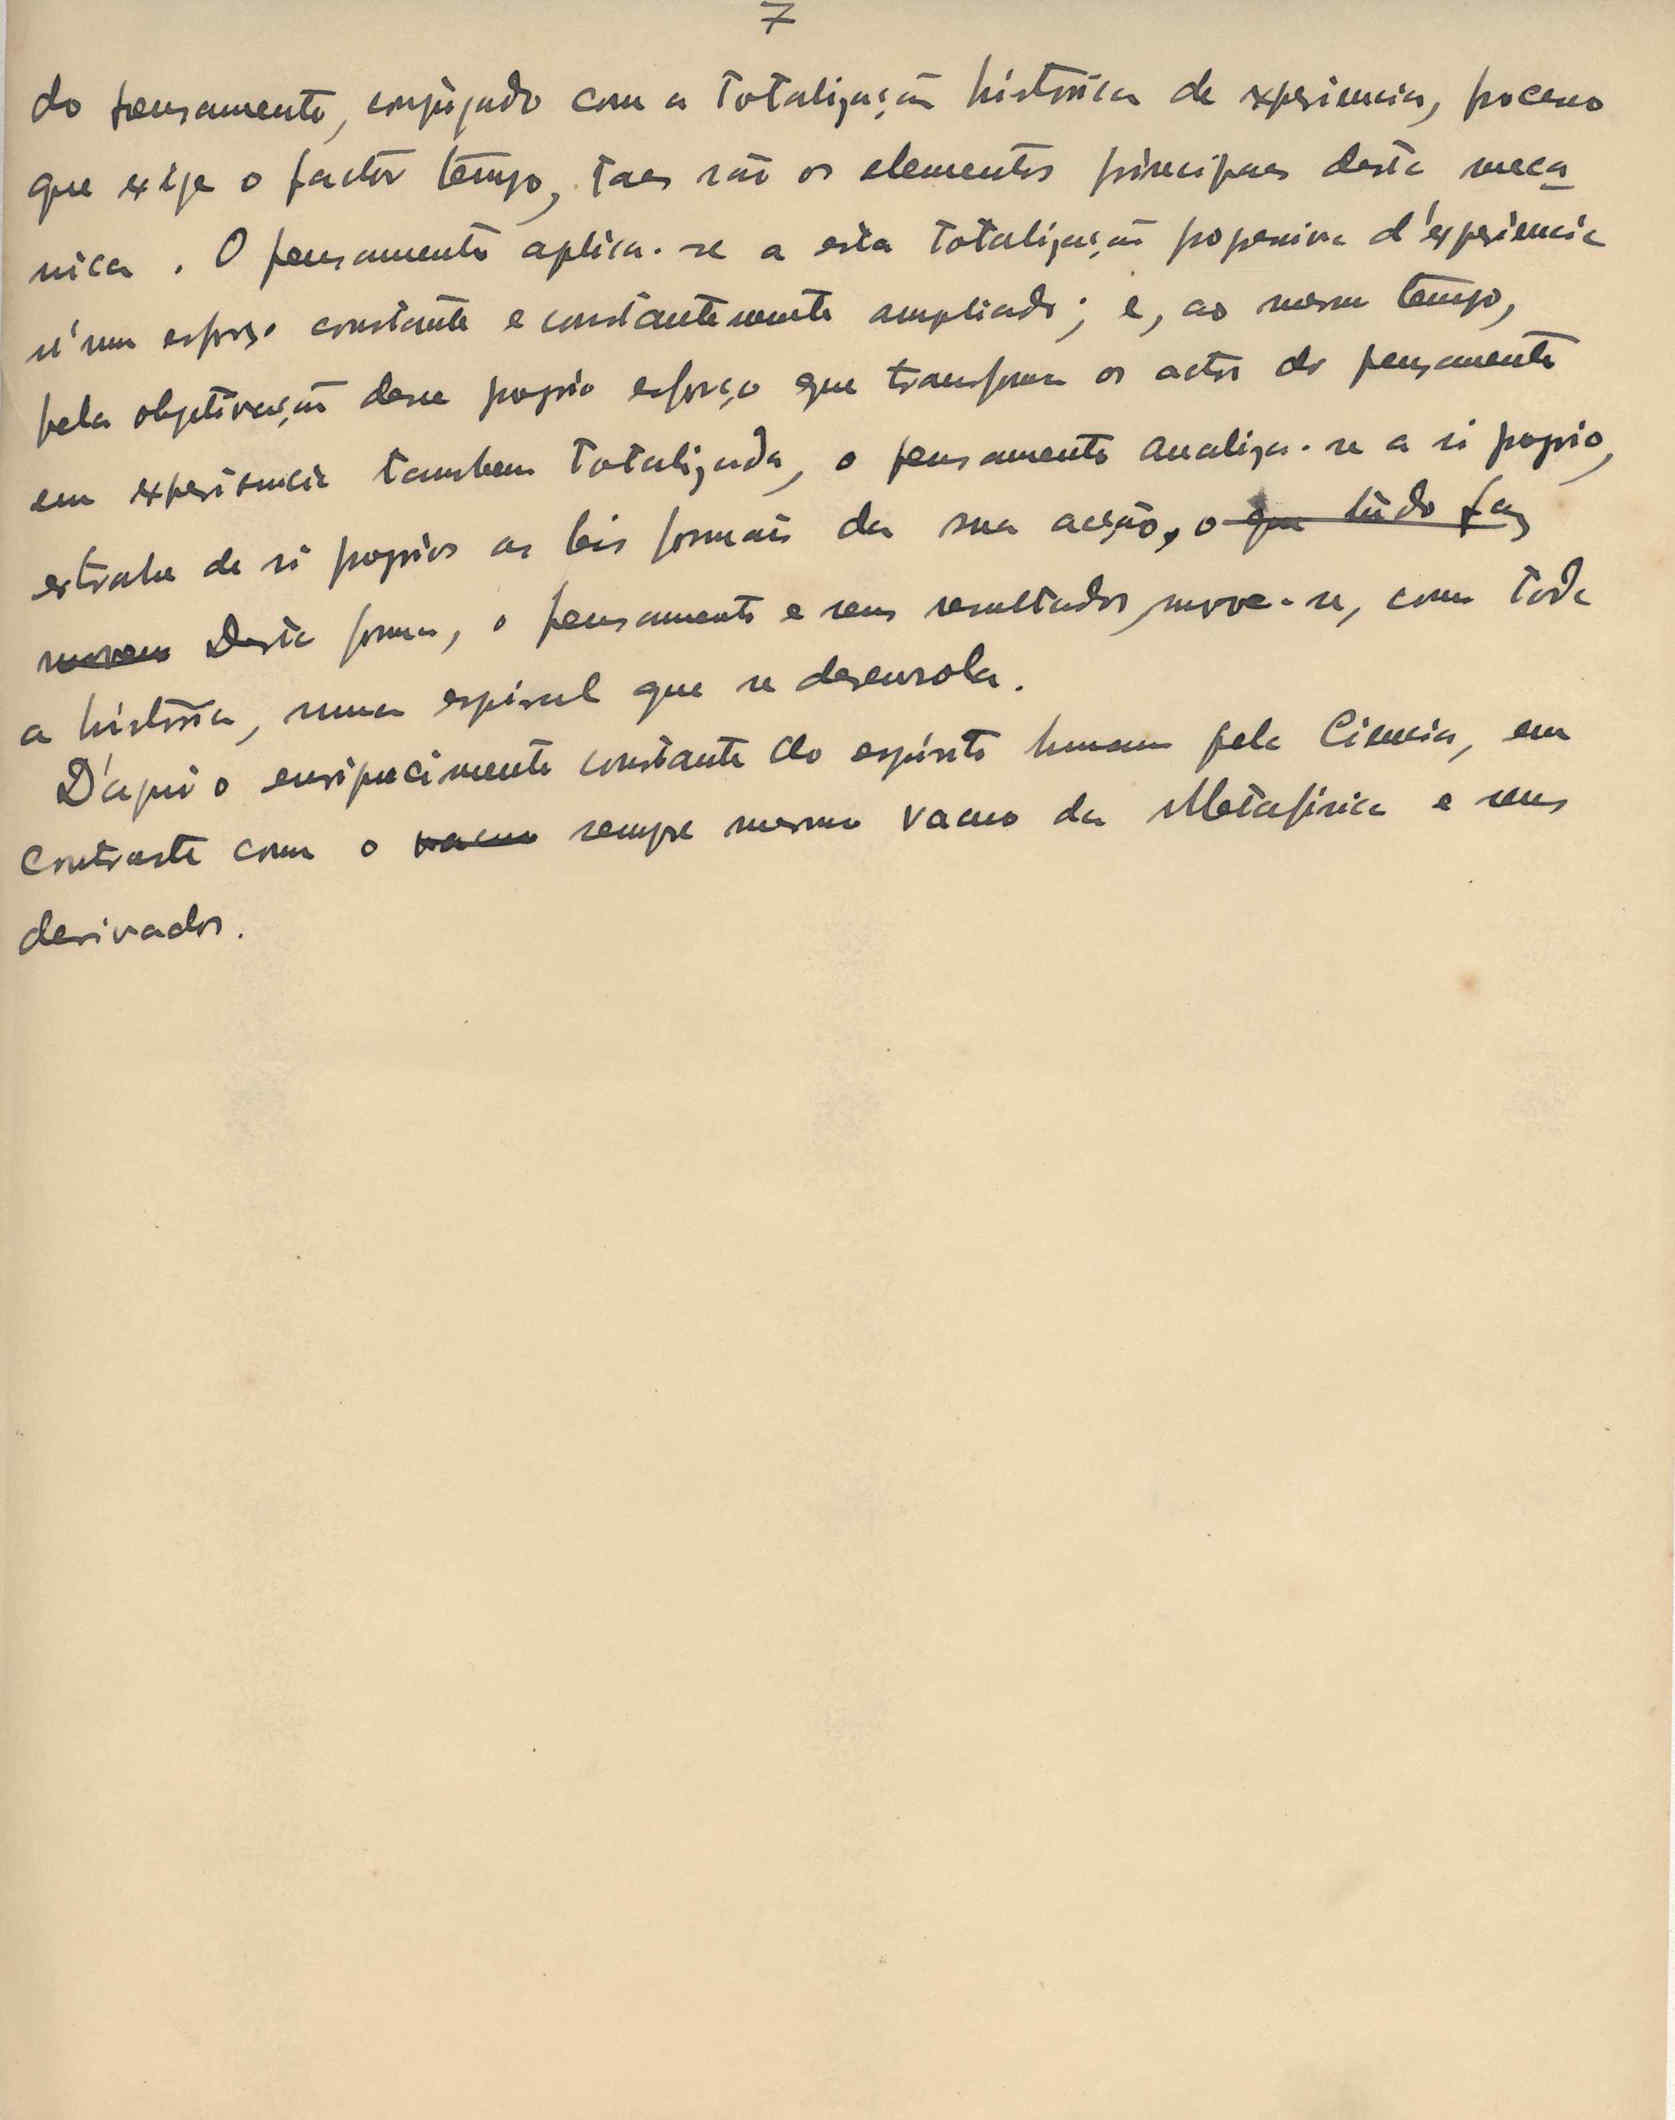 7
do pensamento, conjugado com a totalização histórica de experiencia, processo
que exige o factor tempo, taes são os elementos principaes desta meca
nica. O pensamento aplica-se a esta totalização progressiva d'experiencia
n'um esforço constante e constantemente ampliado; e, ao mesmo tempo,
pela objetivação desse proprio esforço que transforma os actos do pensamento
em experiencia tambem totalizada, o pensamento analiza-se a si proprio,
extrahe de si proprios as leis formais da sua acção, o que tudo faz
movem Desta forma, o pensamento e seus resultados, move-se, com toda
a história, numa espiral que se desenrola.
D'aqui o enriquecimento constante do espirito humano pela Ciencia, em
contraste com o vacuo sempre mesmo vacuo da Metafisica e seus
derivados.